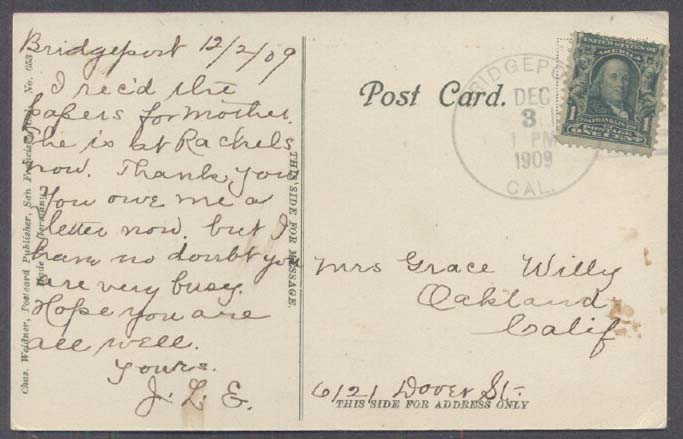 Bridgeport 12/2/09
I rec'd the
papers for mother.
She is at Rachels
now. Thank you
You owe me a
letter now. but I
have no doubt you
are very busy.
Hope you are
all well.
Yours.
J. L. E.
Chas. Weidner, Postcard Publisher, San Francisco, No. 033
Made in Germany.
THIS SIDE FOR MESSAGE.
Post Card.
BRIDGEPORT
DEC
3
1 PM
1909
CAL.
UNITED STATES OF AMERICA
1 1
POSTAGE
ONE CENT
Mrs Grace Willy
Oakland
Calif
6121 Dover St.
THIS SIDE FOR ADDRESS ONLY